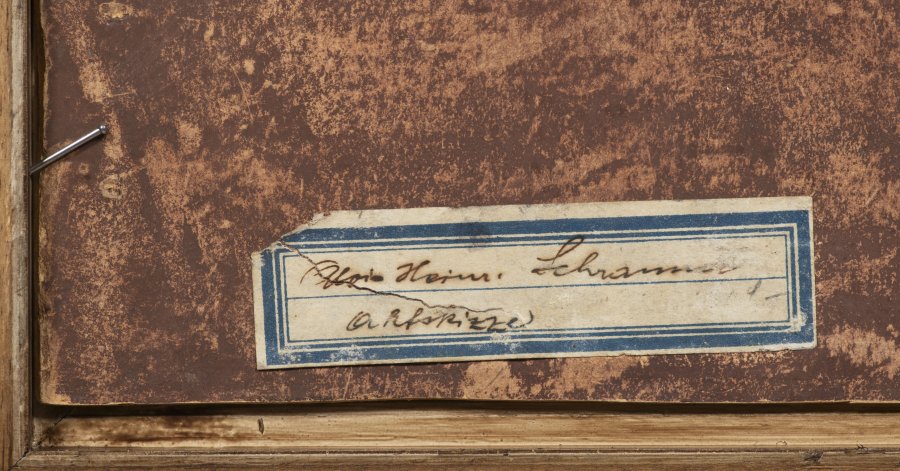 Alois Heinr. Schramm
Aktskizze